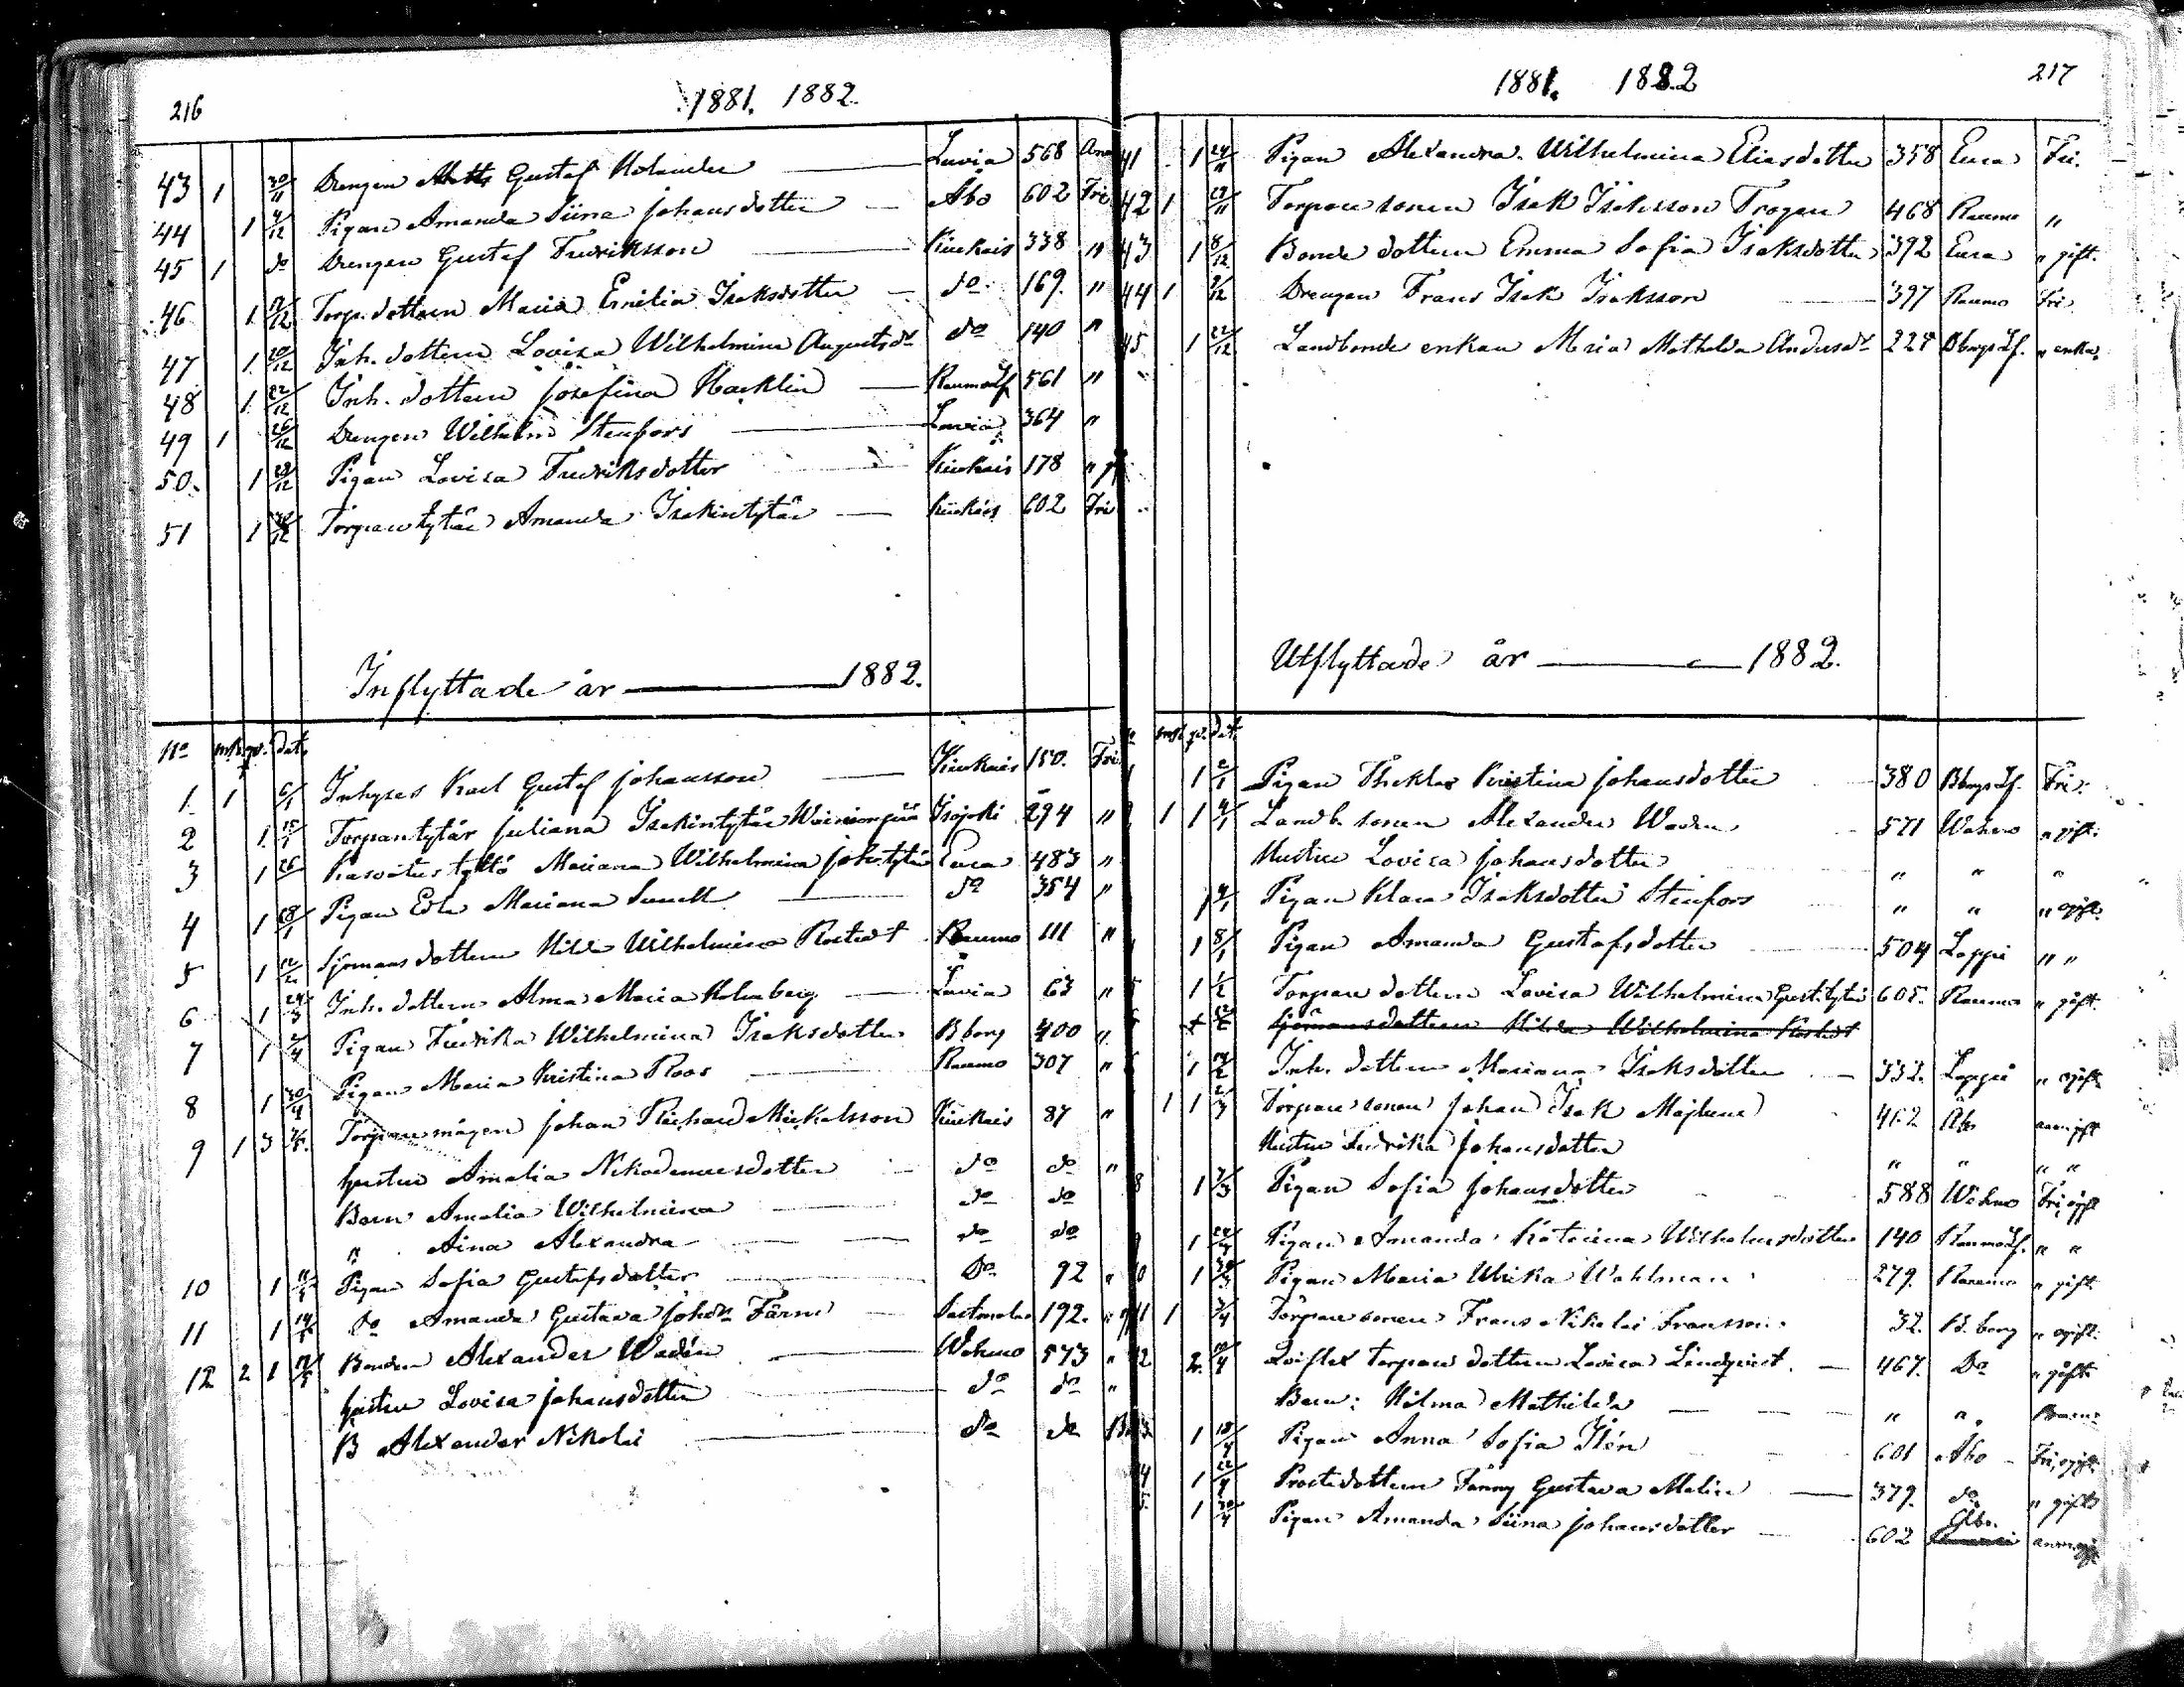 216
1881. 1882.
43 1 30/11 Drengen Matts Gustaf Molander Lavia 568
44 1 4/12 Pigan Amanda Siina Johansdotter Åbo 602 Fri
45 1 do Drengen Gustaf Fredriksson Kiukais 338 "
46 1 9/12 Torp. dottern Maria Emilia Isaksdotter do 169. "
47 1 20/12 Inh. dottern Lovisa Wilhelmina Augustsdr do 140 "
48 1 22/12 Inh. dottern Josefina Hacklin Raumo Lf 561 "
49 1 26/12 Drengen Wilhelm Stenfors Lavia 364 "
50. 1 29/12 Pigan Lovisa Fredriksdotter Kiukais 178 "
51 1 30/12 Torpan tytär Amanda Isakintytär Kiukais 602 Fri
Inflyttade år 1882.
No mk. qv. dat.
1. 1 6/1 Inhyses Karl Gustaf Johansson Kiukais 150. Fri
2 1 15/1 Torpantytär Juliana Isakintytär Isojoki 294 "
3 1 26 Kasvatus tyttö Mariana Wilhelmina Joh. tytär Eura 483 "
4 1 28/1 Pigan Edla Mariana Sunell do 354 "
5 1 12/2 Sjömans dottern Hilda Wilhelmina Rostedt Raumo 111 "
6 1 24/3 Inh. dottern Alma Maria Holmberg Lavia 63 "
7 1 2/4 Pigan Fredrika Wilhelmina Isaksdotter B borg 400 "
8 1 30/4 Pigan Maria Kristina Roos Raumo 307 "
9 1 3 Torparemågen Johan Richard Mickelsson Kiukais 87 "
Hustru Amalia Nikodemusdotter do do "
Barn Amalia Wilhelmina do do
" Aina Alexandra do do
10 1 Pigan Sofia Gustafsdotter Do 92 "
11 1 14/5 Do Amanda Gustava Johdr Färm Sastmola 192. "
12 2 1 Bonden Alexander Wadén Wehmo 573 "
Hustru Lovisa Johansdotter do do "
B Alexander Nikolai do do
1881. 1882
217
41 1 24/11 Pigan Alexandra Wilhelmina Eliasdotter 358 Eura Fri.
42 1 29/11 Torpare sonen Isak Isaksson Trogen 468 Raumo "
43 1 8/12 Bonde dottern Emma Sofia Isaksdotter 392 Eura " gift.
44 1 9/12 Drengen Frans Isak Isaksson 397 Raumo Fri
45 1 22/12 Landbonde enkan Maria Mathilda Andersdr 228 Bborgs Lf. " enka
Utflyttade år 1882.
No mk. qv. dat.
1 1 2/1 Pigan Thekla Kristina Johansdotter 380 Bborgs Lf. Fri.
1 1 4/1 Landb. sonen Alexander Waden 571 Wehmo " gift.
Hustru Lovisa Johansdotter " " "
1 4/1 Pigan Klara Isaksdotter Stenfors " " " ogift.
1 8/1 Pigan Amanda Gustafsdotter 504 Lappi " "
1 1/2 Torpare dottern Lovisa Wilhelmina Gust.tytär 605. Raumo " gift.
Sjömansdottern Hilda Wilhelmina Rostedt
1 14/2 Inh. dottern Mariana Isaksdotter 332. Lappi " ogift
1 1 2/3 Torpare sonen Johan Isak Majlund 462 Åbo
Hustru Fredrika Johansdotter " " " "
8 1 7/3 Pigan Sofia Johansdotter 588 Wehmo Fri, ogift
1 Pigan Amanda Katarina Wilhelmsdotter 140 Raumo Lf. " "
10 1 30/3 Pigan Maria Ulrika Wahlman 279. Raumo " gift
11 1 3/4 Torpare sonen Frans Nikolai Fransson. 32. B. borg " ogift.
12 2. 10/4 Qvinsfex torpare dottern Lovisa Lindqvist. 467. Do " gift
Barn: Hilma Mathilda " "
13 1 18/4 Pigan Anna Sofia Ilén 601 Åbo Fri, ogift.
14 1 22/4 Prostedottern Fanny Gustava Malin 379. do " gift
15. 1 30/4 Pigan Amanda Siina Johansdotter 602 Åbo.